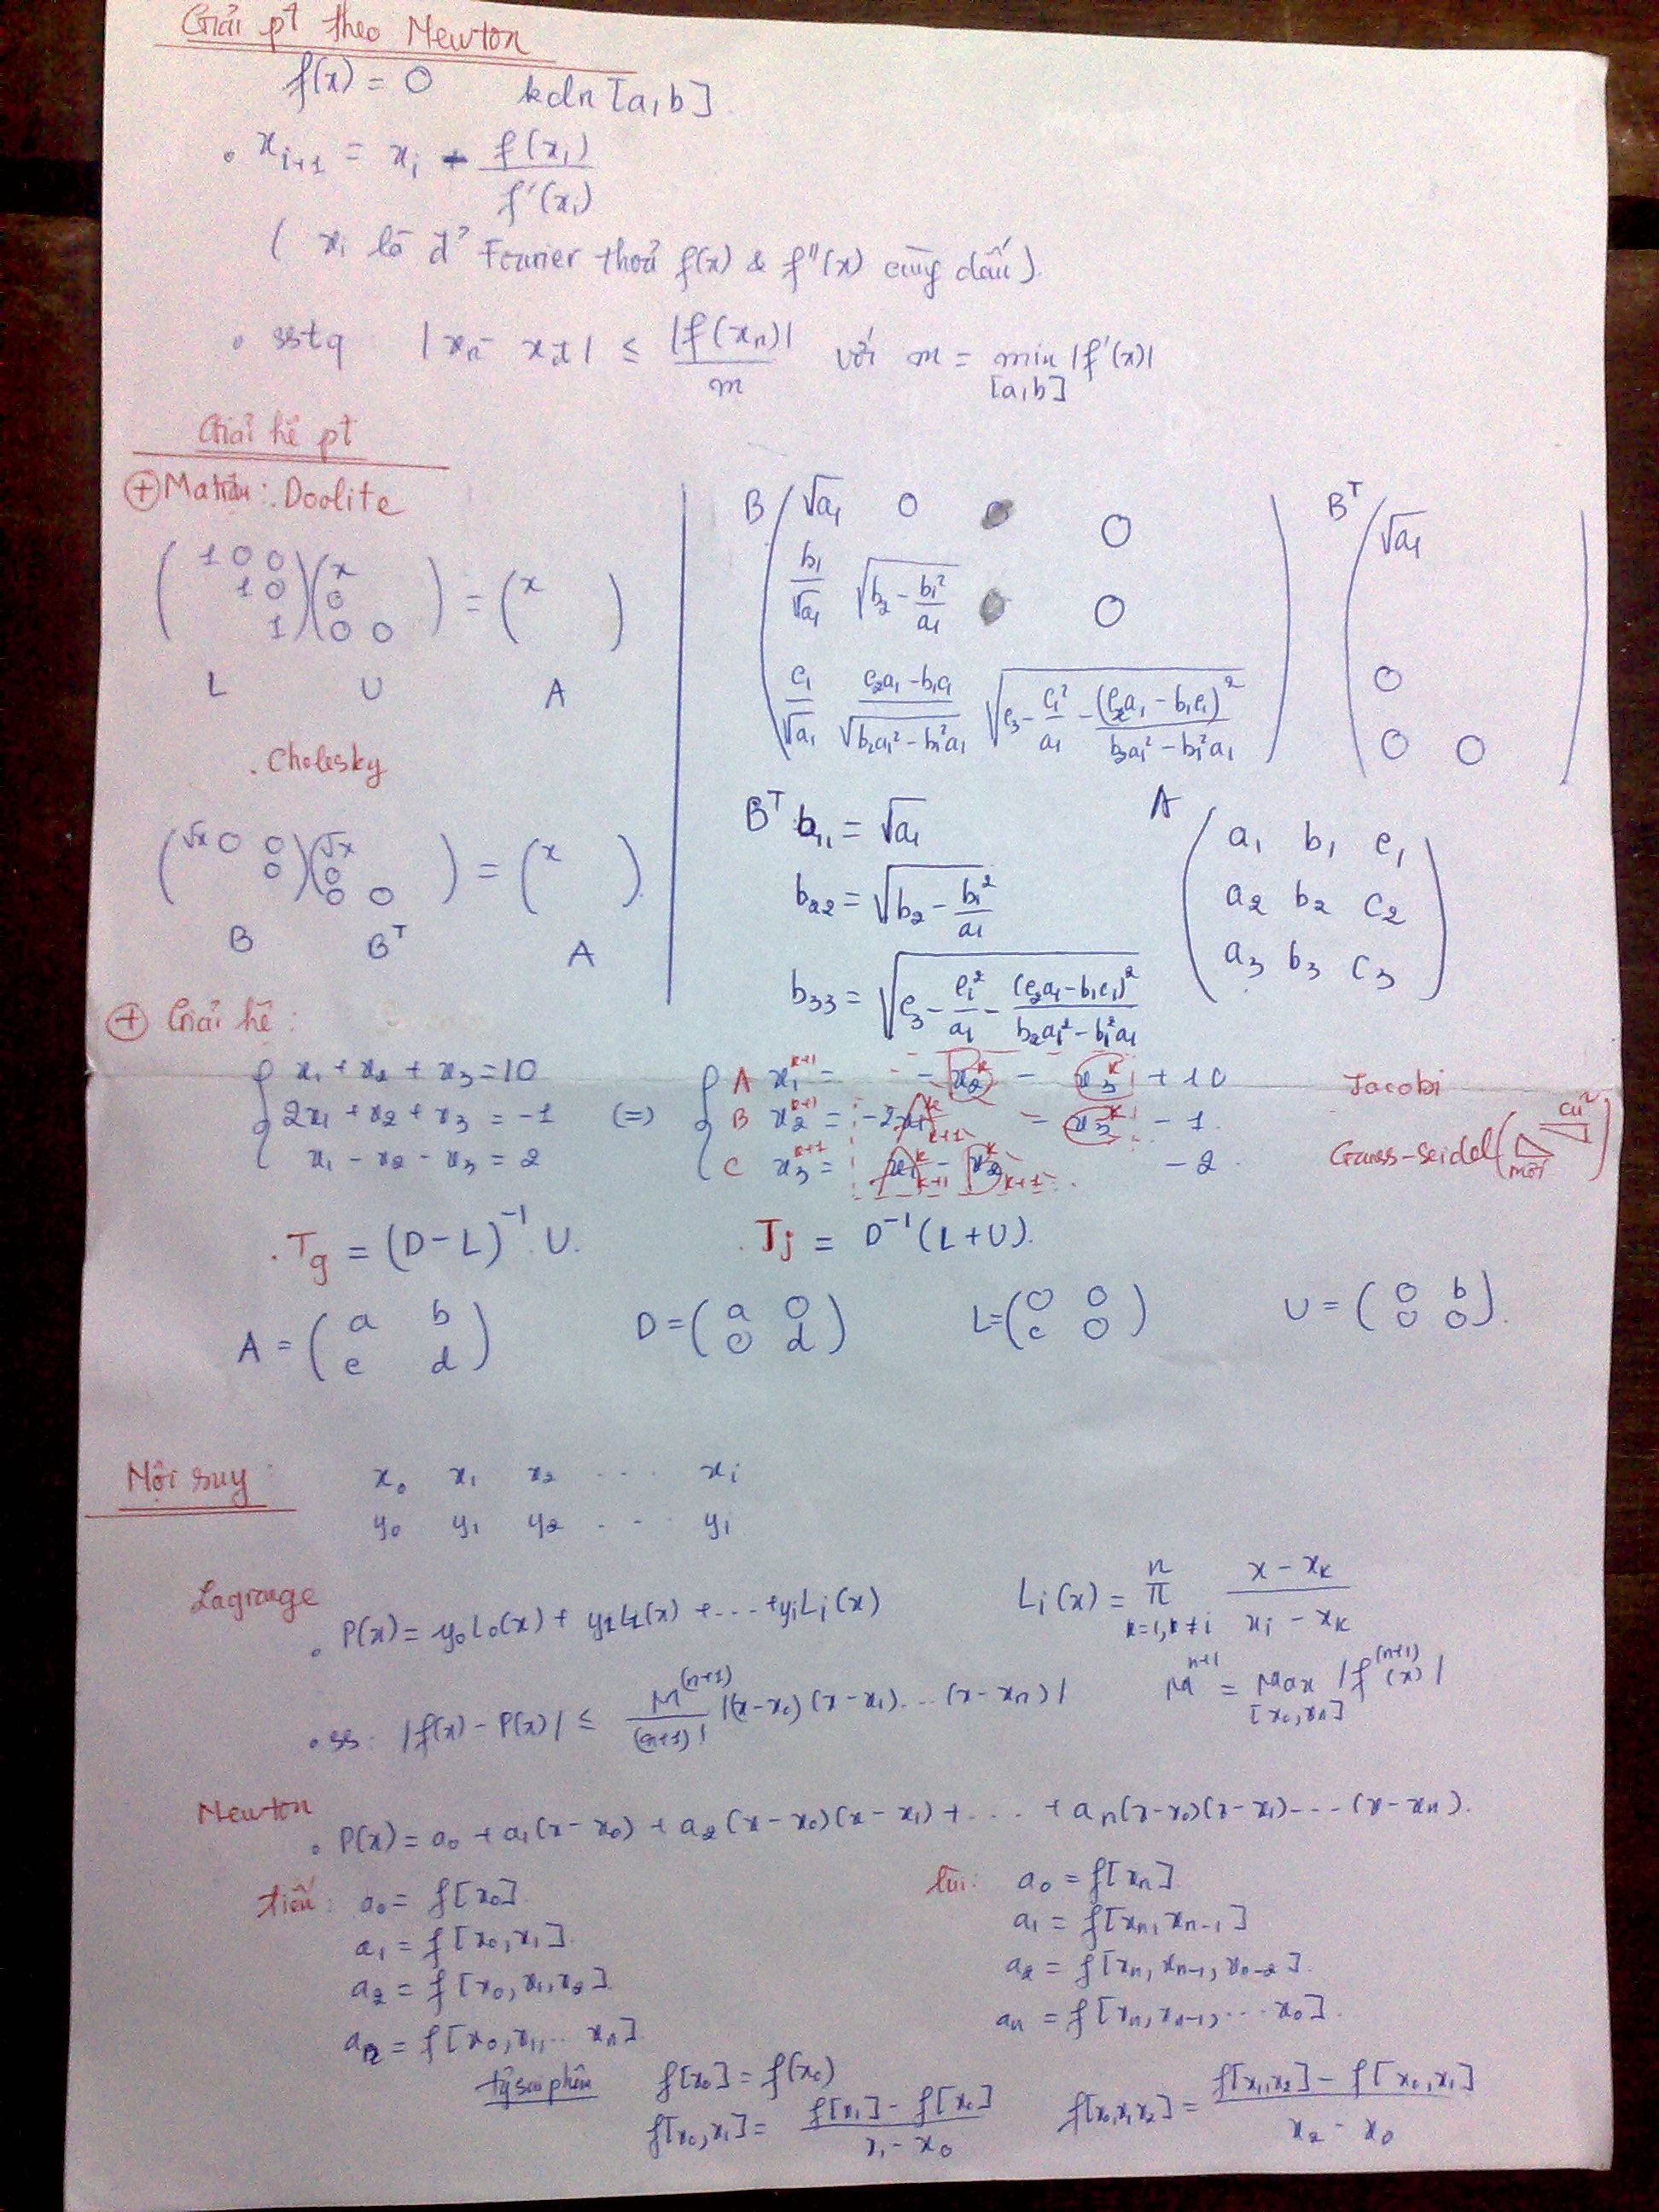 Giải pt theo Newton
f(x) = 0 kcln [a,b].
• x_{i+1} = x_i - f(x_i) / f'(x_i)
( x_i là đ' Fourier thoả f(x) & f''(x) cùng dấu).
• sstq |x_n - x_α| ≤ |f(x_n)| / m với m = min_{[a,b]} |f'(x)|
Giải hệ pt
⊕ Ma trận: . Doolite
( 1 0 0 ) ( x ) = ( x )
1 0 0
1 0 0
L U A
. Cholesky
( √x 0 0 ) ( √x ) = ( x ).
0 0
0 0
B B^T A
B ( √a_1 0 0
b_1/√a_1 √(b_2 - b_1²/a_1) 0
c_1/√a_1 (c_2a_1 - b_1c_1)/√(b_2a_1² - b_1²a_1) √(c_3 - c_1²/a_1 - (c_2a_1 - b_1c_1)²/(b_2a_1² - b_1²a_1)) )
B^T ( √a_1
0
0 0 )
B^T b_11 = √a_1
b_22 = √(b_2 - b_1²/a_1)
b_33 = √(c_3 - c_1²/a_1 - (c_2a_1 - b_1c_1)²/(b_2a_1² - b_1²a_1))
A ( a_1 b_1 c_1
a_2 b_2 c_2
a_3 b_3 c_3 )
⊕ Giải hệ:
{ x_1 + x_2 + x_3 = 10
2x_1 + x_2 + x_3 = -1 (=)
x_1 - x_2 - x_3 = 2
{ A x_1^{k+1} = - x_2^k - x_3^k + 10
B x_2^{k+1} = -2x_1^k_{k+1} - x_3^k - 1.
C x_3^{k+1} = x_1^k_{k+1} - x_2^k_{k+1} - 2
Jacobi
Gauss-Seidel ( mới cũ )
. T_g = (D - L)^{-1} . U.
. T_j = D^{-1} (L + U).
A = ( a b
c d )
D = ( a 0
0 d )
L = ( 0 0
c 0 )
U = ( 0 b
0 0 ).
Nội suy:
x_0 x_1 x_2 ... x_i
y_0 y_1 y_2 ... y_i
Lagrange
• P(x) = y_0L_0(x) + y_1L_1(x) + ... + y_iL_i(x)
L_i(x) = π_{k=1, k≠i}^{n} (x - x_k)/(x_i - x_k)
• ss: |f(x) - P(x)| ≤ M^{(n+1)}/(n+1)! |(x - x_0)(x - x_1)...(x - x_n)|
M^{n+1} = Max_{[x_0,x_n]} |f^{(n+1)}(x)|
Newton
• P(x) = a_0 + a_1(x - x_0) + a_2(x - x_0)(x - x_1) + ... + a_n(x - x_0)(x - x_1)...(x - x_n).
tiến: a_0 = f[x_0].
a_1 = f[x_0, x_1].
a_2 = f[x_0, x_1, x_2].
a_n = f[x_0, x_1, ... x_n].
lùi: a_0 = f[x_n].
a_1 = f[x_n, x_{n-1}]
a_2 = f[x_n, x_{n-1}, x_{n-2}].
a_n = f[x_n, x_{n-1}, ... x_0].
tỷ sai phân
f[x_0] = f(x_0)
f[x_0, x_1] = (f[x_1] - f[x_0])/(x_1 - x_0)
f[x_0, x_1, x_2] = (f[x_1, x_2] - f[x_0, x_1])/(x_2 - x_0)